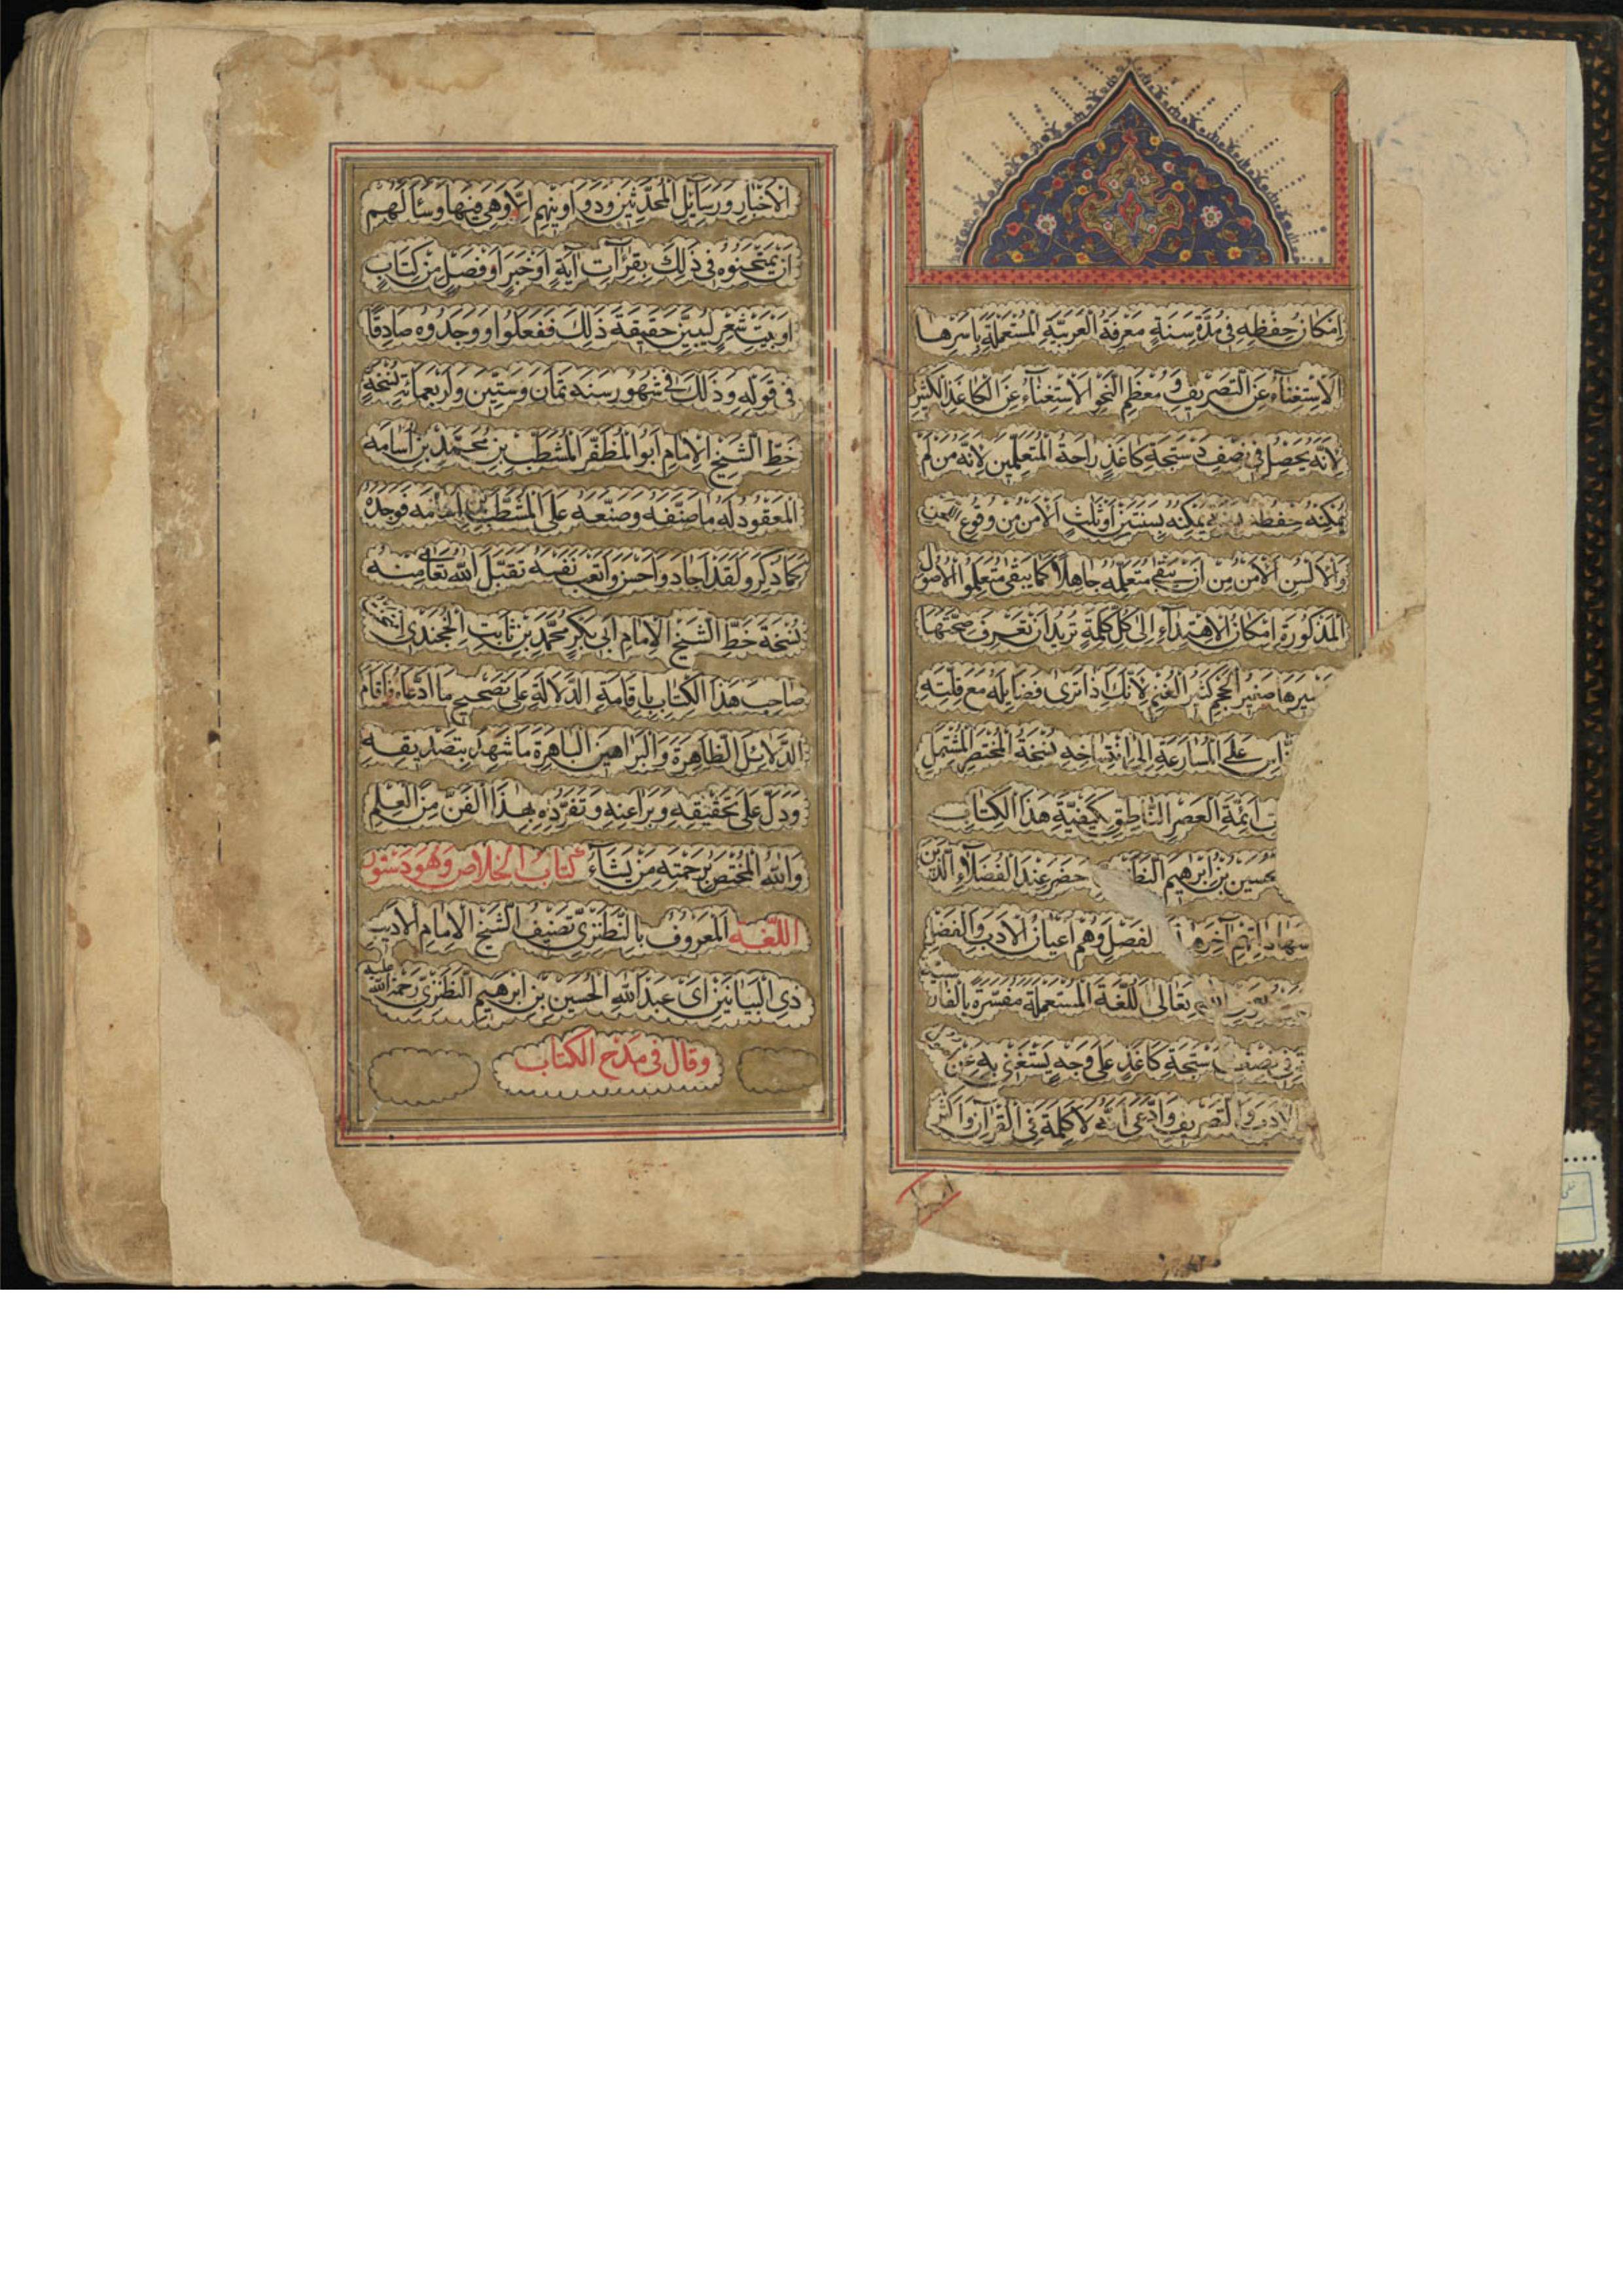 اِمْكَانُ حِفْظِهِ فِي مُدَّةِ سَنَةٍ مَعْرِفَةُ الْعَرَبِيَّةِ الْمُسْتَعْمَلَةِ بِاَسْرِهَا
الْاِسْتِغْنَاءُ عَنِ التَّصْرِيفِ وَمُعْظَمِ النَّحْوِ الْاِسْتِغْنَاءُ عَنِ الْكَاغَذِ الْكَثِيرِ
لِاَنَّهُ يَحْصُلُ فِي نِصْفِ دَسْتَجَةِ كَاغَذٍ رَاحَةُ الْمُتَعَلِّمِينَ لِاَنَّهُ مَنْ لَمْ
يُمْكِنْهُ حِفْظُهُ يُمْكِنُهُ بِسَنَتَيْنِ اَوْ ثَلٰثٍ الْاَمْنُ مِنْ وُقُوعِ
وَالْاَلْسُنِ الْاَمْنُ مِنْ اَنْ يَبْقَى مُتَعَلِّمُهُ جَاهِلًا كَمَا يَبْقَى مُتَعَلِّمُوا الْاُصُولِ
الْمَذْكُورَةِ اِمْكَانُ الْاِهْتِدَاءِ اِلَى كُلِّ كَلِمَةٍ تُرِيدُ اَنْ تَعْرِفَ صِحَّتَهَا
صَغِيرُ الْحَجْمِ كَثِيرُ الْغُنْمِ لِاَنَّكَ اِذَا تَرَى فَضَايِلَهُ مَعَ قِلَّتِهِ
عَلَى الْمُسَارَعَةِ اِلَى اِنْتِسَاخِهِ نُسْخَةُ الْمُخْتَصَرِ الْمُشْتَمِلِ
اَئِمَّةِ الْعَصْرِ النَّاطِقِ بِكَيْفِيَّةِ هٰذَا الْكِتَابِ
بْنُ اِبْرٰهِيمَ حَضَرَ عِنْدَ الْفُضَلَاءِ الَّذِينَ
آخِرَ وَهُمْ اَعْيَانُ الْاَدَبِ وَالْفَضْلِ
تَعَالَى اللُّغَةَ الْمُسْتَعْمَلَةَ مُفَسَّرَةً
فِي نِصْفِ دَسْتَجَةِ كَاغَذٍ عَلَى وَجْهٍ يَسْتَغْنِي بِهِ عَنْ
الْاَدَبِ وَالتَّصْرِيفِ وَادَّعَى اَنَّهُ لَا كَلِمَةَ فِي الْقُرْاٰنِ وَاَكْثَرِ
الْاَخْبَارِ وَرَسَآئِلِ الْمُحَدِّثِينَ وَدَوَاوِينِهِمْ اِلَّا وَهِيَ فِيهَا وَسَأَلَهُمْ
اَنْ يَمْتَحِنُوهُ فِي ذَلِكَ بِقِرَآءَتِ آيَةٍ اَوْ خَبَرٍ اَوْ فَصْلٍ مِنْ كِتَابٍ
اَوْ بَيْتِ شِعْرٍ لِيُبَيِّنَ حَقِيقَةَ ذَلِكَ فَفَعَلُوا وَوَجَدُوهُ صَادِقًا
فِي قَوْلِهِ وَذَلِكَ فِي شُهُورِ سَنَةِ ثَمَانٍ وَسِتِّينَ وَاَرْبَعِمِائَةٍ نُسْخَةُ
خَطِّ الشَّيْخِ الْاِمَامِ اَبُو الْمُظَفَّرِ الْمُشَطَّبِ بْنِ مُحَمَّدِ بْنِ اُسَامَهْ
الْمَعْقُودِ لَهُ مَا صَنَّفَهُ وَصَنَعَهُ عَلَى الْمُشَطَّبِ بْنِ اُسَامَهْ فَوَجَدَهُ
كَمَا ذَكَرَ وَلَقَدْ اَجَادَ وَاَحْسَنَ وَاَتْعَبَ نَفْسَهُ تَقَبَّلَ اللّٰهُ تَعَالَى مِنْهُ
نُسْخَةُ خَطِّ الشَّيْخِ الْاِمَامِ اَبِي بَكْرٍ مُحَمَّدِ بْنِ ثَابِتٍ الْخُجَنْدِي
صَاحِبَ هٰذَا الْكِتَابِ بِاِقَامَةِ الدَّلَالَةِ عَلَى تَصْحِيحِ مَا ادَّعَاهُ فَاَقَامَ
الدَّلَائِلَ الظَّاهِرَةَ وَالْبَرَاهِينَ الْبَاهِرَةَ مَا شَهِدَ بِتَصْدِيقِهِ
وَدَلَّ عَلَى تَحْقِيقِهِ وَبَرَاعَتِهِ وَتَفَرُّدِهِ بِهٰذَا الْفَنِّ مِنَ الْعِلْمِ
وَاللّٰهُ الْمُخْتَصُّ بِرَحْمَتِهِ مَنْ يَشَآءُ كِتَابُ الْخَلَاصِ وَهُوَ دَسْتُورُ
اللُّغَهْ الْمَعْرُوفُ بِالنَّطَنْزِيِّ تَصْنِيفُ الشَّيْخِ الْاِمَامِ الْاَدِيبِ
ذِي الْبَيَانَيْنِ اَبِي عَبْدِ اللّٰهِ الْحُسَيْنِ بْنِ اِبْرٰهِيمَ النَّطَنْزِيِّ رَحْمَةُ اللّٰهِ عَلَيْهِ
وَقَالَ فِي مَدْحِ الْكِتَابِ